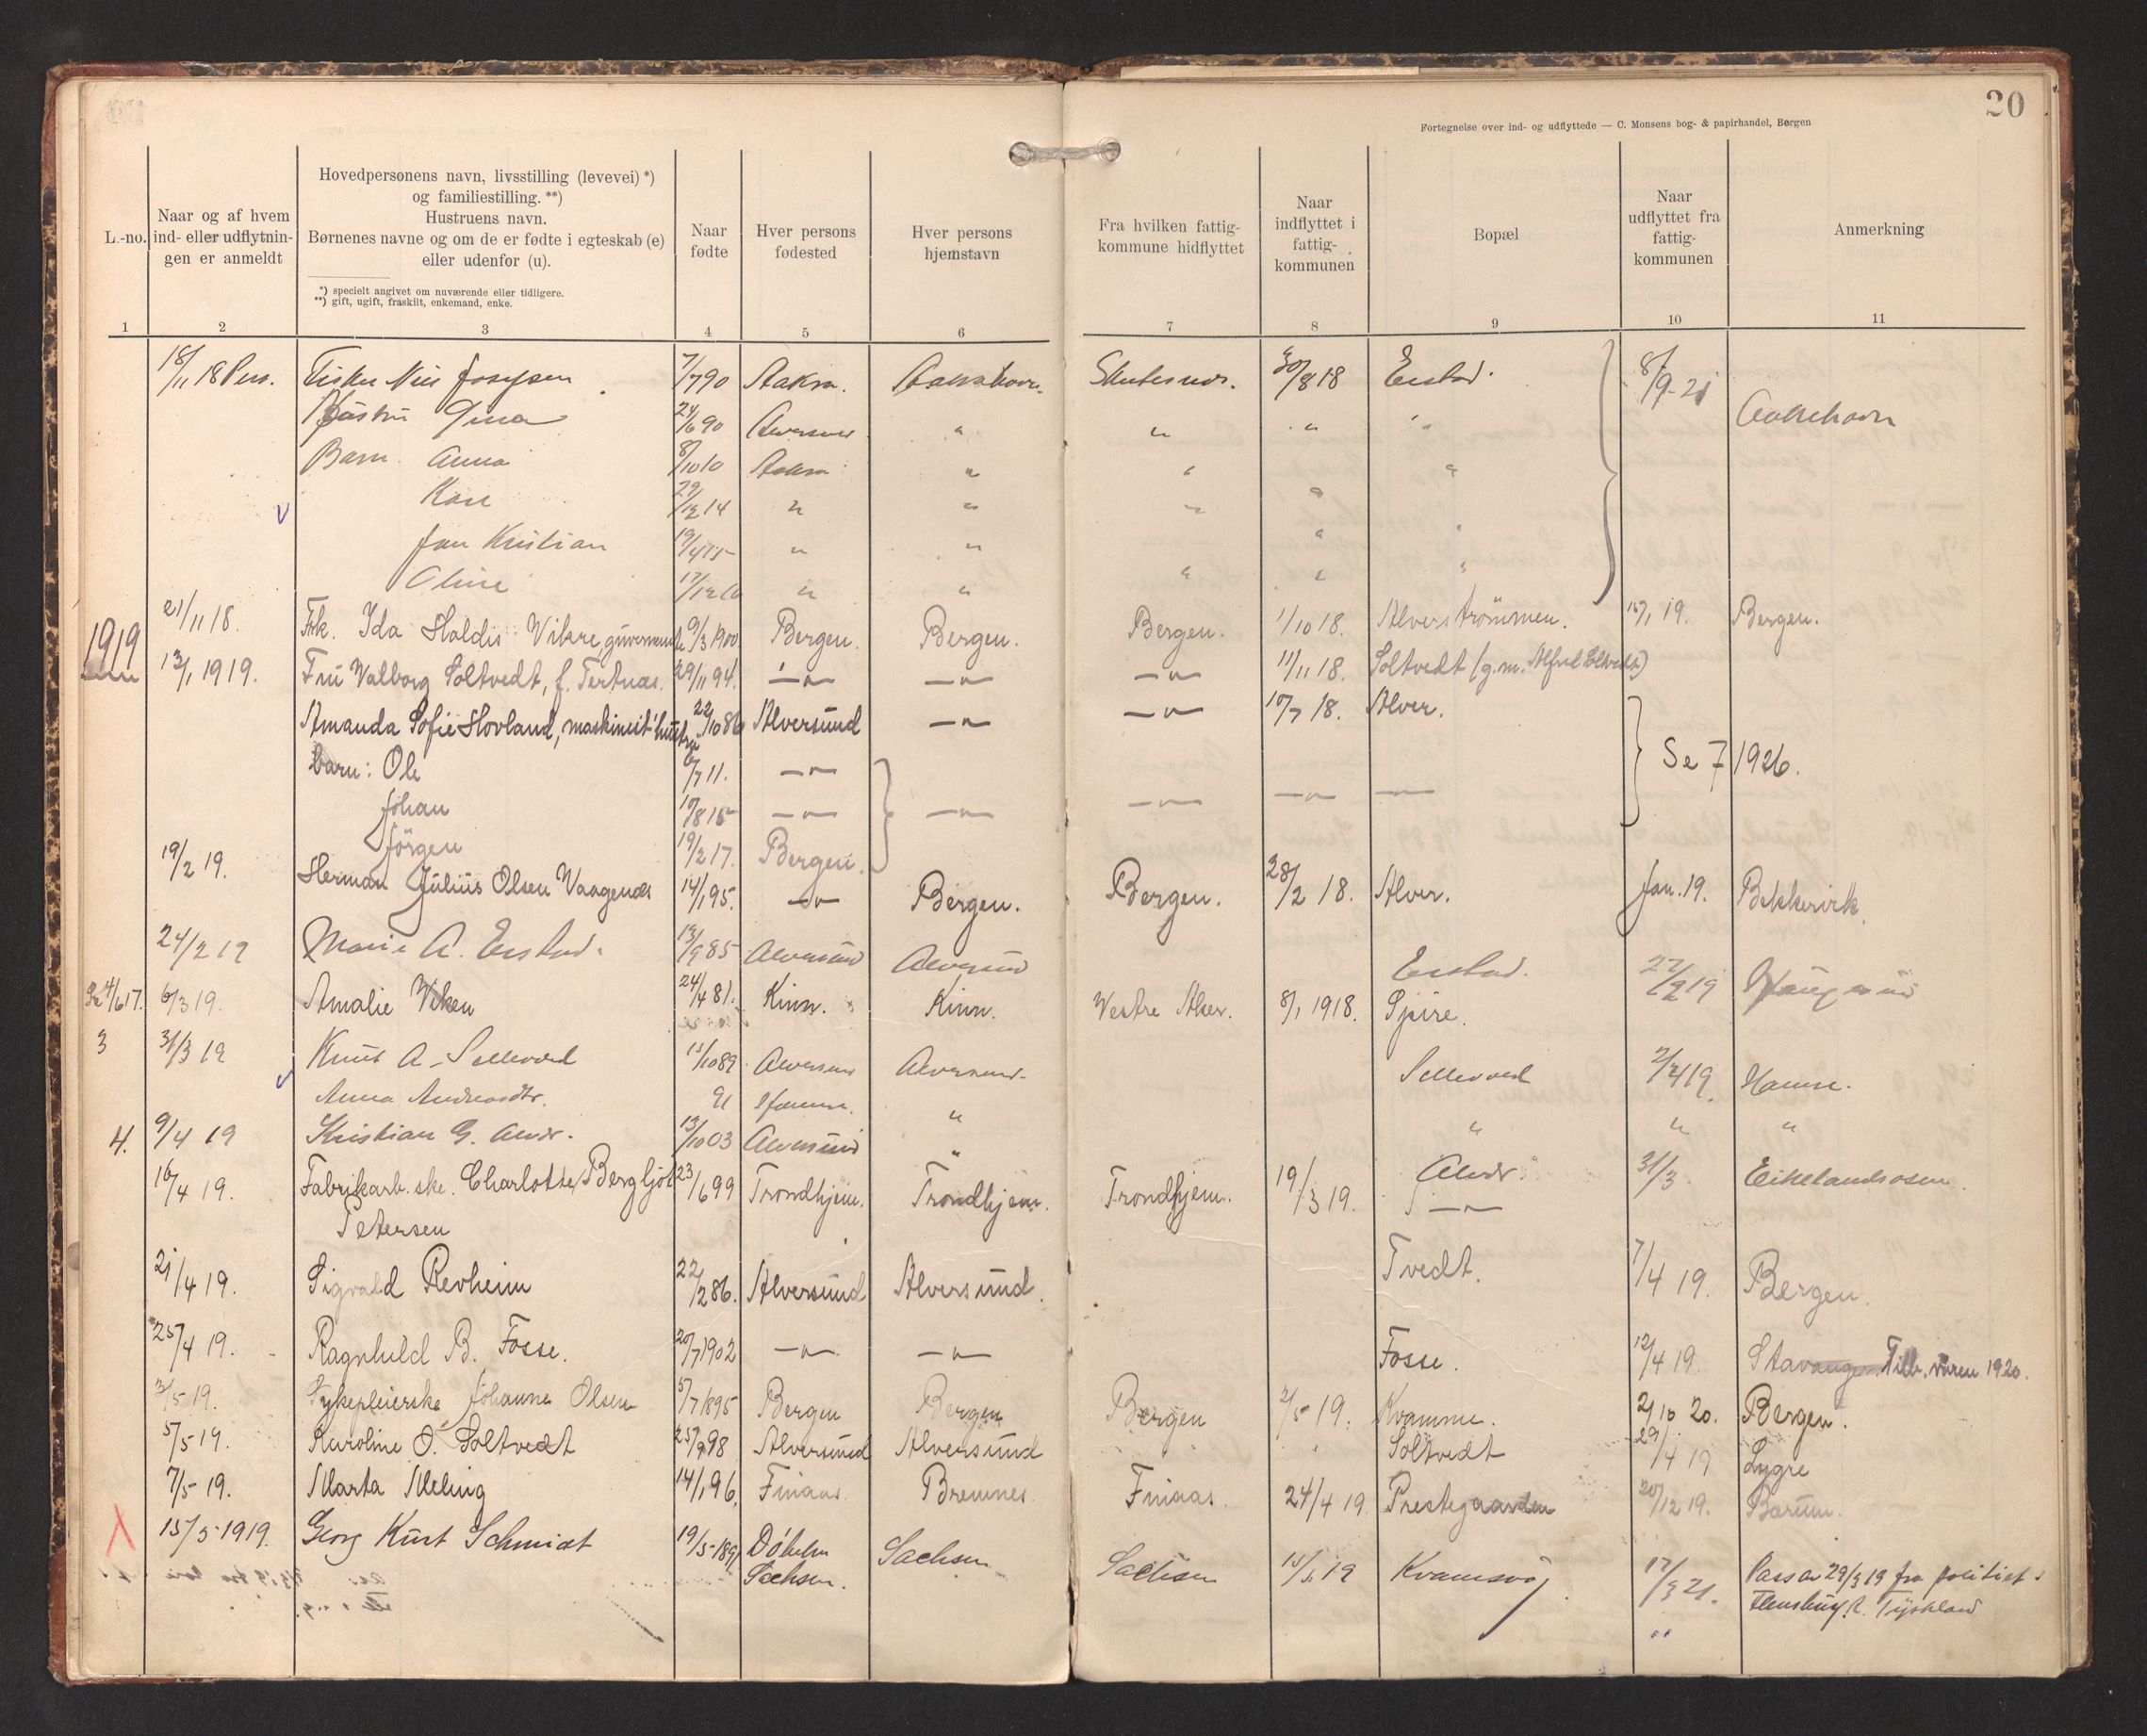 20
Fortegnelse over ind- og udflyttede — C. Monsens bog- & papirhandel, Bergen
L.-no.
Naar og af hvem
ind- eller udflytnin-
gen er anmeldt
Hovedpersonens navn, livsstilling (levevei) *)
og familiestilling. **)
Hustruens navn.
Børnenes navne og om de er fødte i egteskab (e)
eller udenfor (u).
*) specielt angivet om nuværende eller tidligere.
**) gift, ugift, fraskilt, enkemand, enke.
Naar
fødte
Hver persons
fødested
Hver persons
hjemstavn
Fra hvilken fattig-
kommune hidflyttet
Naar
indflyttet i
fattig-
kommunen
Bopæl
Naar
udflyttet fra
fattig-
kommunen
Anmerkning
1 2 3 4 5 6 7 8 9 10 11
18/11 18 Pers. Fisker Nils Josefsen 7/7 90 30/8 18 Eistad. 8/9-21
Hustru Gina 24/6 90 " " " "
Barn. Anna 8/10 10 " " "
Kare 29/12 14 " " " "
Jan Kristian 19/4 15 " " "
Oline " " " "
21/11 18. Frk. Ida Haldis Vikre, guvernante 9/3 1900 Bergen. Bergen. Bergen. 1/10 18. Alverströmmen. 19. Bergen.
1919 13/1 1919. Fru Valborg Soltvedt, f. Tertnæs. 29/11 94. —"— —"— —"— 11/11 18. Soltvedt (g.m. Alfred Soltvedt)
Amanda Sofie Hovland, maskinist hustru 22/10 86 Alversund —"— —"— 10/7 18. Alver.
barn: Ole 6/7 11. —"— Se 7 1926.
Johan 10/8 15 —"— —"— —"— —"— —"—
Jörgen 19/2 17. Bergen.
19/2 19. Herman Julius Olsen Vaagenes 14/1 95. —"— Bergen. Bergen. 28/2 18. Alver. Jan. 19. Bekkervik.
24/2 19 Marie A. Eistad. 13/9 85 Alversund Alversund Eistad.
6/3 19. Amalie Viken 24/4 81. Kinn. Kinn. Vestre Aker. 8/1 1918. Spire.
3 31/3 19 Knut A. Sellevold 11/10 89 Alversund Alversund. Sellevold Hamre.
Anna 91 Hamre. " " " "
4. 9/4 19 Kristian G. Alver. 13/10 03 Alversund " Alver. 31/3. Eikelandsosen.
16/4 19. Fabrikarb.ske. Charlotte Bergljot 23/6 99 Trondhjem. Trondhjem. Trondhjem. 19/3 19. —"—
Petersen
21/4 19. Sigvald Revheim 22/2 86. Alversund Alversund. Tvedt. 7/4 19. Bergen.
25/4 19. Ragnhild B. Fosse. 20/7 1902 —"— —"— Fosse. 12/4 19. Stavanger. Tilb. våren 1920.
3/5 19. Sykepleierske Johanna Olsen 5/7 1895 Bergen Bergen Bergen 2/5 19. Kvamme. 2/10 20. Bergen.
5/5 19. Karoline O. Soltvedt Alversund Alversund Soltvedt 29/4 19 Lygre
7/5 19. Marta Meling 14/1 96. Finaas. Bremnes. Finaas. 24/4 19 Prestegaarden 20/12 19. Bærum.
15/5-1919. Georg Kurt Schmidt 19/5-1891 Döbeln Sachsen Sachsen Kvamsvåg 17/3 21. Pass av 29/3 19 fra politiet i
Sachsen. Flensburg. Tyskland